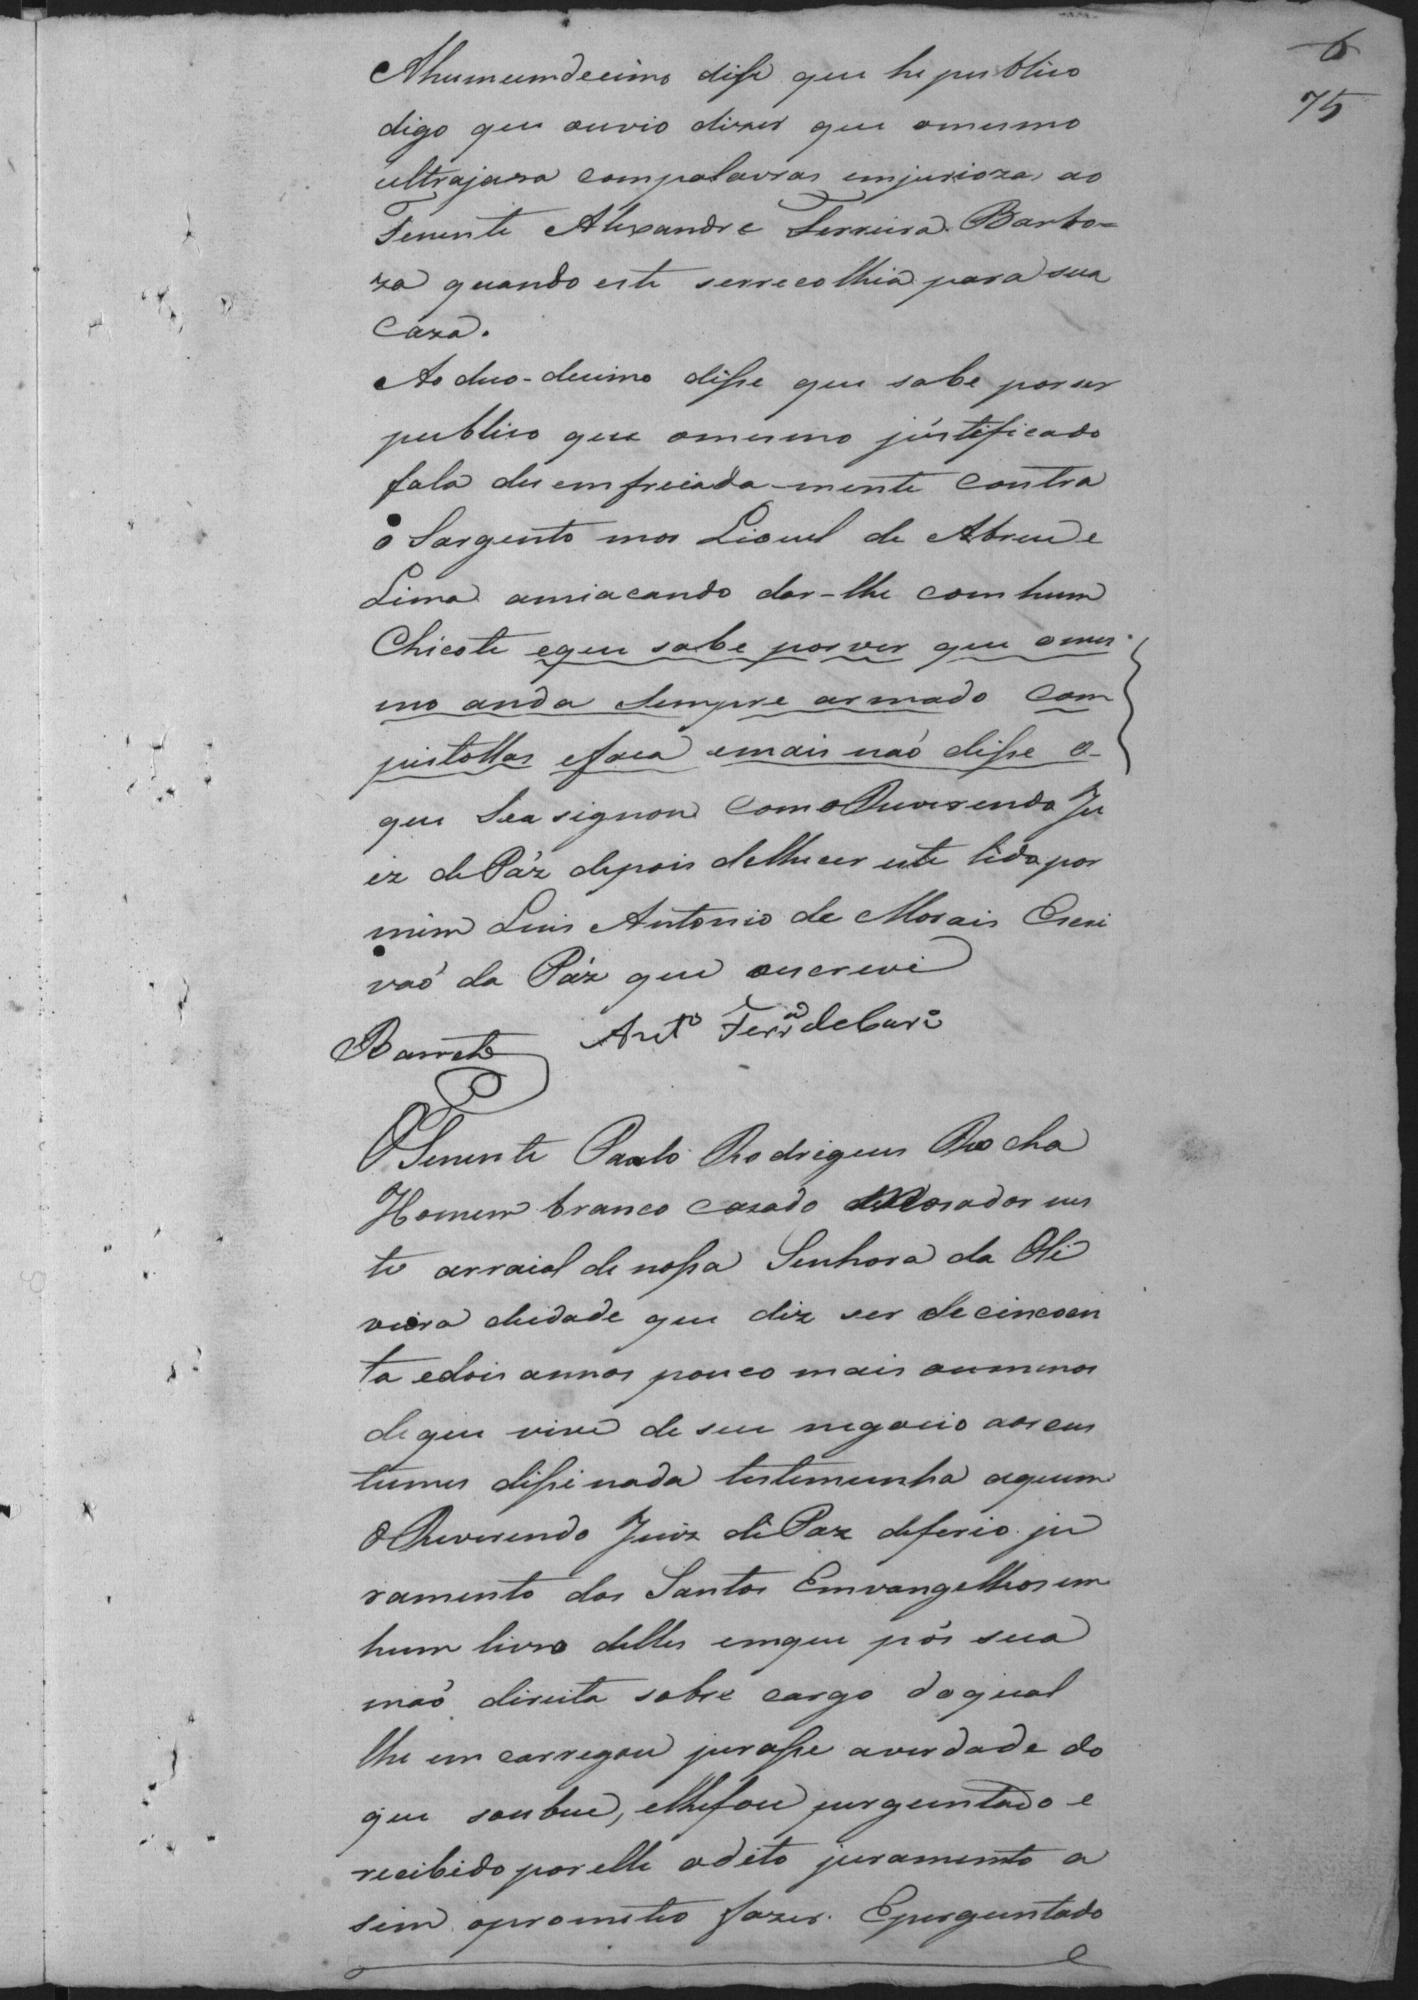 6
75
Ahumumdecimo diſse que he publico
digo que ouvio dizer que omesmo
ultrajara compalavras emjurioza, ao
Tenente Alexandre Ferreira Barbo=
za quando este serrecolhia para sua
Caza.
Ao duo-decimo diſse que sabe porser
publico que omesmo justificado
fala desemfreiada-mente contra
o Sargento mor Lionel de Abreu e
Lima amiacando dar-lhe com hum
Chicote eque sabe porver que omes
mo anda sempre armado com
pistollas efaca emais naó diſse o
que Seasignou com o Reverendo Ju
iz de Páz depois delhe ser este lido por
mim Luis Antonio de Morais Escri
vaó da Páz que oescrevi
Barreto Antº Ferrª de
O Tenente Paulo Rodrigues Rocha
Homem branco cazado Morador nes
te arraial de noſsa Senhora da Oli
veira deidade que diz ser de cincoen
ta edois annos pouco mais oumenos
deque vive de seu negocio aoscus
tumes diſse nada testemunha aquem
o Reverendo Juiz de Paz deferio ju
ramento dos Santos Emvangelhos em
hum livro delles emque pós sua
maó direita sobre cargo doqual
lhe em carregou juraſse averdade do
que soubese, elhefoi purguntado e
recibido por elle odito juramento a
sim oprometeo fazer. Eperguntado